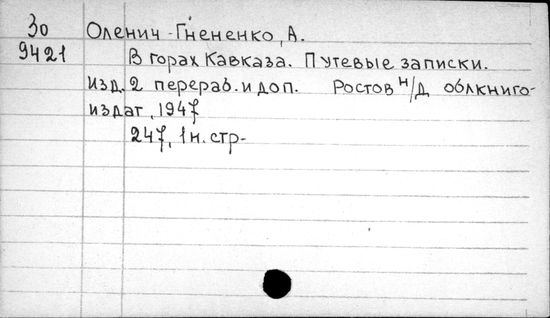 30 Оленич-Гнененко, А.
9421 В горах Кавказа. Путевые записки.
Изд. 2 перераб. и доп. Ростов н/Д облкниго-
издат, 1947
247, 1 н. стр-